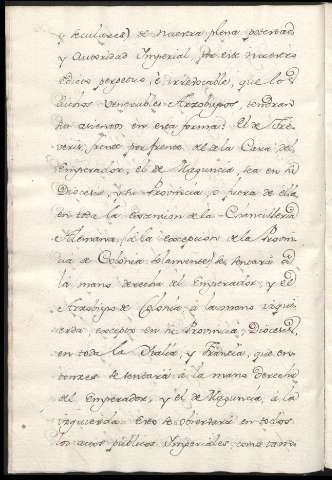 y seculares) de nuestra plena potestad
y Autoridad Imperial, por este nuestro
edicto perpetuo, e irrevocable, que los
dichos Venerables Arzobispos, tendran
sus asientos en esta forma: El de Tre-
veris, frente por frente de la Cara del
Emperador; el de Maguncia, sea en su
Diocesis, y su Provincia, o fuera de ella
en toda la extension de la Chancilleria
Alemana, (a la excepcion de la Provin-
cia de Colonia solamente) se sentará a
la mano derecha del Emperador, y el
Arzobispo de Colonia a la mano izqui-
erda, excepto en su Provincia, Diocesis,
en toda la Italia, y Francia, que en-
tonces se sentará á la mano Derecha
del Emperador, y el de Maguncia, á la
izquierda. Esto se observará en todos
los actos publicos Imperiales, como tam-